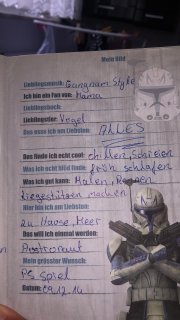 Mein Bild
Lieblingsmusik: Gangnam Style
Ich bin ein Fan von: Mama
Lieblingsbuch:
Lieblingstier: Vogel
Das esse ich am liebsten:
ALLES
Das finde ich echt cool: chillen, Schreien
Was ich echt blöd finde: früh schlafen
Was ich gut kann: Malen, Rennen
Liegestützen machen
Hier bin ich am liebsten:
zu Hause, Meer
Das will ich einmal werden:
Astronaut
Mein grösster Wunsch:
PS Spiel
Datum: 09.12.14